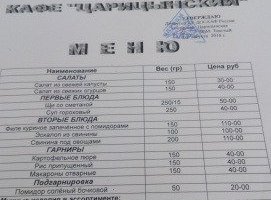 КАФЕ "ЦАРИЦЫНСКИЙ"
УТВЕРЖДАЮ
МЕНЮ
Наименование Вес (гр) Цена руб
САЛАТЫ
Салат из свежей капусты 150 30-00
Салат из свежих огурцов 150 40-00
ПЕРВЫЕ БЛЮДА
Щи со сметаной 250/15 50-00
Суп гороховый 250 40-00
ВТОРЫЕ БЛЮДА
Филе куриное запеченное с помидорами 150 110-00
Эскалоп из свинины 100 100-00
Свинина под овощами 200 110-00
ГАРНИРЫ
Картофельное пюре 150 40-00
Рис припущенный 150 40-00
Макароны отварные 150 40-00
Подгарнировка
Помидор солёный бочковой 50 20-00